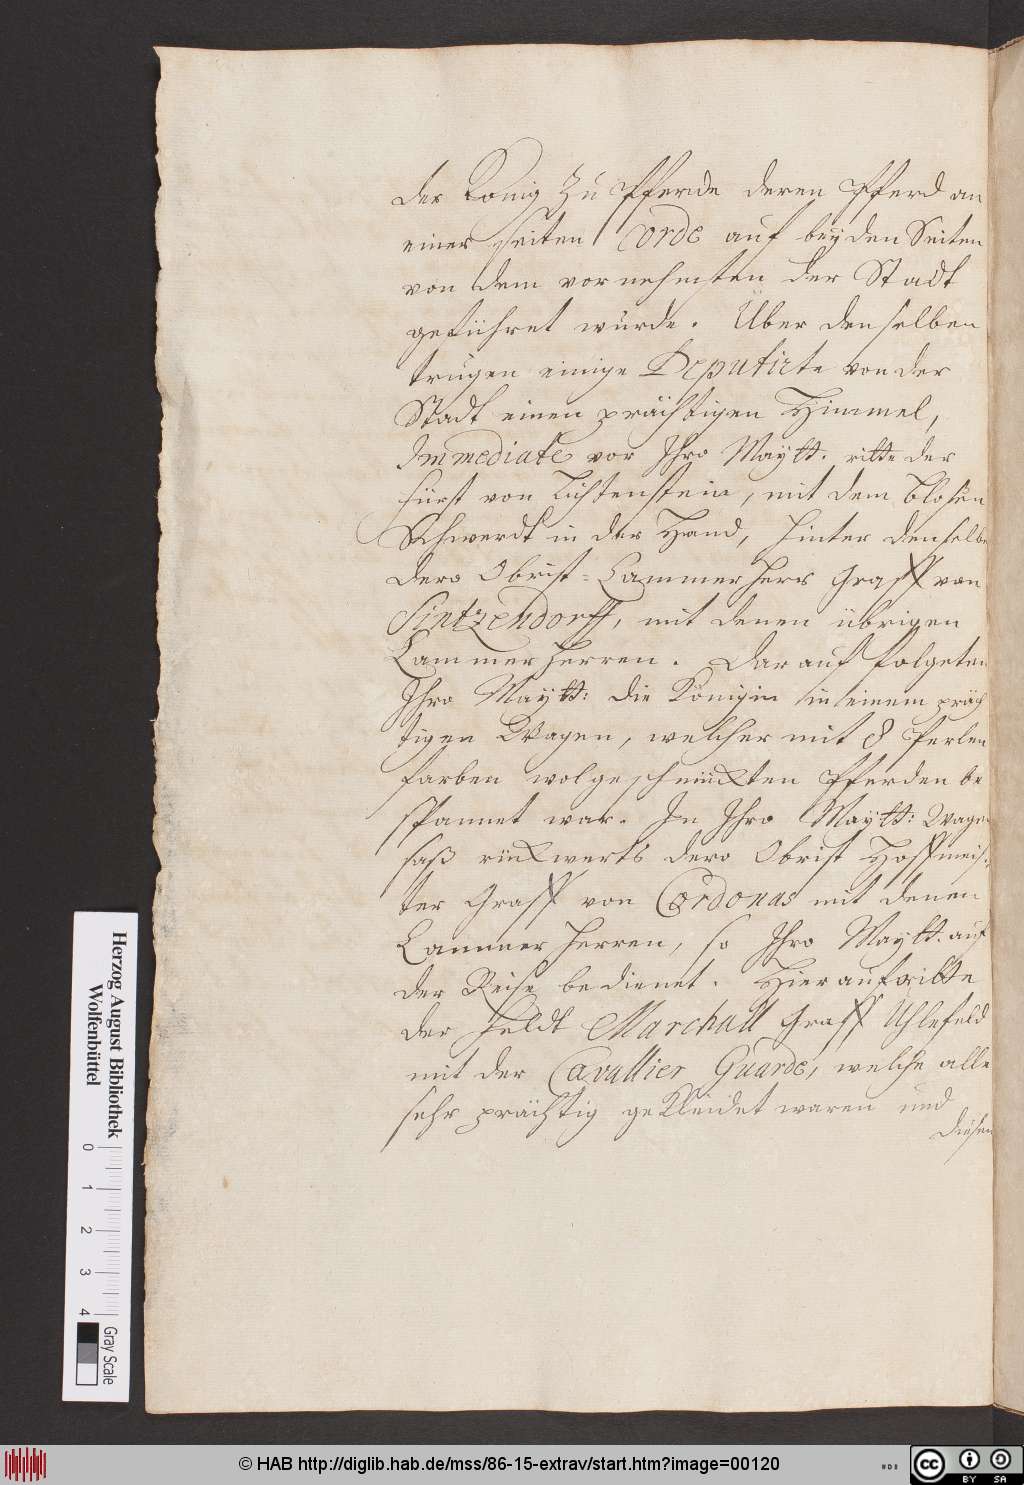 der König zu Pferde deren Pferd an
einer seiten Corde auf beÿden Seiten
von dem vornehmsten der Stadt
geführet wurde. Über denselben
trugen einige Deputirte von der
Stadt einen prächtigen Himmel,
Immediate vor Ihro Maÿtt. ritte der
Fürst von Lichtenstein, mit dem blosen
Schwerdt in der Hand, hinter denselbe
dero Obrist-Cammerherr Graff von
Sintzendorff, mit denen übrigen
Cammerherren. Darauf folgeten
Ihro Maÿtt: die Königin in einem präch
tigen Wagen, welcher mit 8 Perlen
farben wolgeschmückten Pferden be
spannet war. In Ihro Maÿtt: Wagen
saß rückwerts dero Obrist Hoffmeis-
ter Graff von Cordonas mit denen
Cammerherren, so Ihro Maÿtt. auf
der Reise bedienet. Hierauf ritte
der Feldt Marchall Graff Uhlefeld
mit der Cavallier Guarde, welche alle
sehr prächtig gekleidet waren und
diesen
Herzog August Bibliothek
Wolfenbüttel
0 1 2 3 4
Gray Scale
© HAB http://diglib.hab.de/mss/86-15-extrav/start.htm?image=00120
cc BY SA